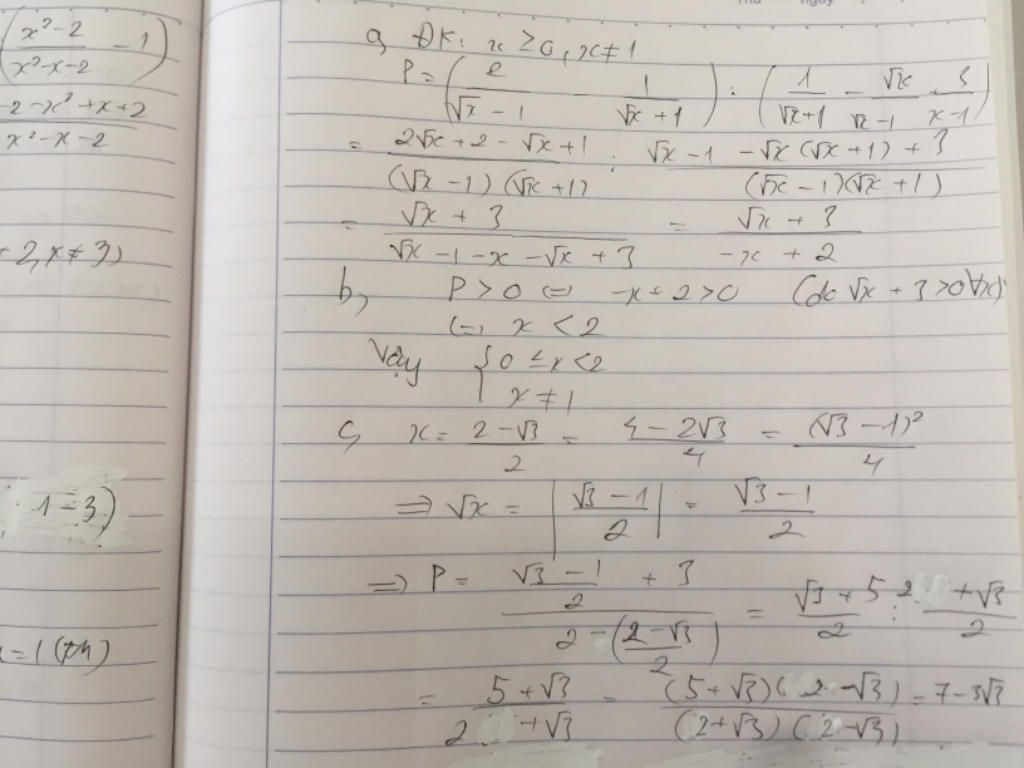 (x²-2/x²-x-2 - 1)
2-x²+x+2/x²-x-2
2, x≠3)
1-3)
=1 (tm)
a, ĐK: x ≥ 0, x≠1
P = (2/√x - 1 - 1/√x + 1) : (1/√x+1 - √x/√x-1 + 3/x-1)
= 2√x + 2 - √x + 1/(√x - 1)(√x + 1) : √x - 1 - √x(√x + 1) + 3/(√x - 1)(√x + 1)
= √x + 3/√x - 1 - x - √x + 3 = √x + 3/-x + 2
b, P > 0 <=> -x + 2 > 0 (do √x + 3 > 0 ∀x)
<=> x < 2
Vậy { 0 ≤ x < 2
x ≠ 1
c, x = 2 - √3/2 = 4 - 2√3/4 = (√3 - 1)²/4
=> √x = |√3 - 1/2| = √3 - 1/2
=> P = √3 - 1/2 + 3/2 - (2 - √3/2) = √3 + 5/2 : 2 + √3/2
= 5 + √3/2 + √3 = (5 + √3)(2 - √3)/(2 + √3)(2 - √3) = 7 - 3√3